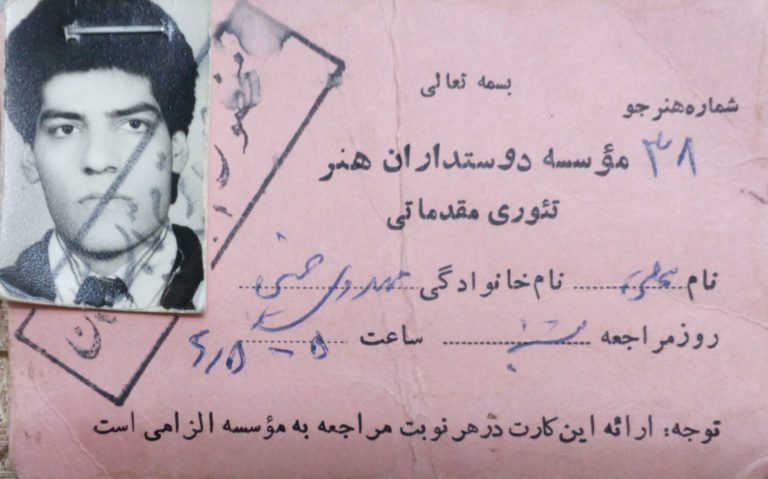 بسمه تعالی
شماره هنرجو
۳۸
مؤسسه دوستداران هنر
تئوری مقدماتی
نام علی نام خانوادگی
روز مراجعه شنبه ساعت ۵ - ۶٫۵
توجه: ارائه این کارت در هر نوبت مراجعه به مؤسسه الزامی است